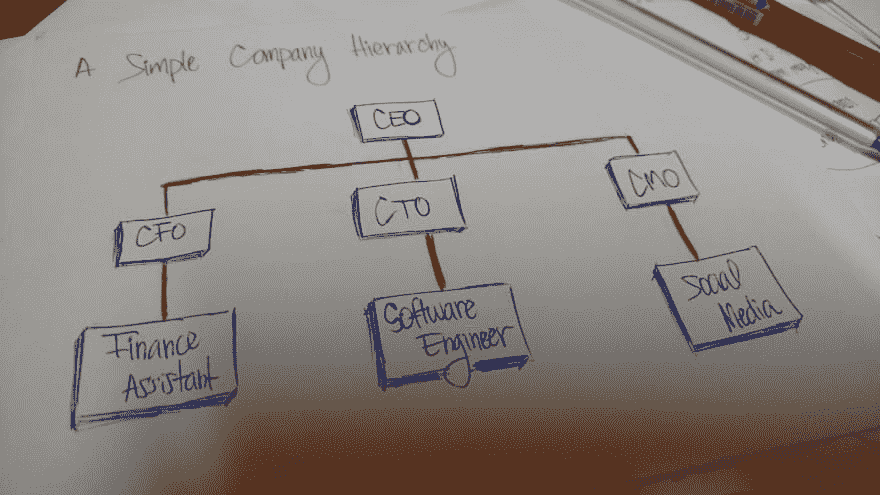 A Simple Company Hierarchy
CEO
CFO
CTO
CMO
Finance
Assistant
Software
Engineer
Social
Media